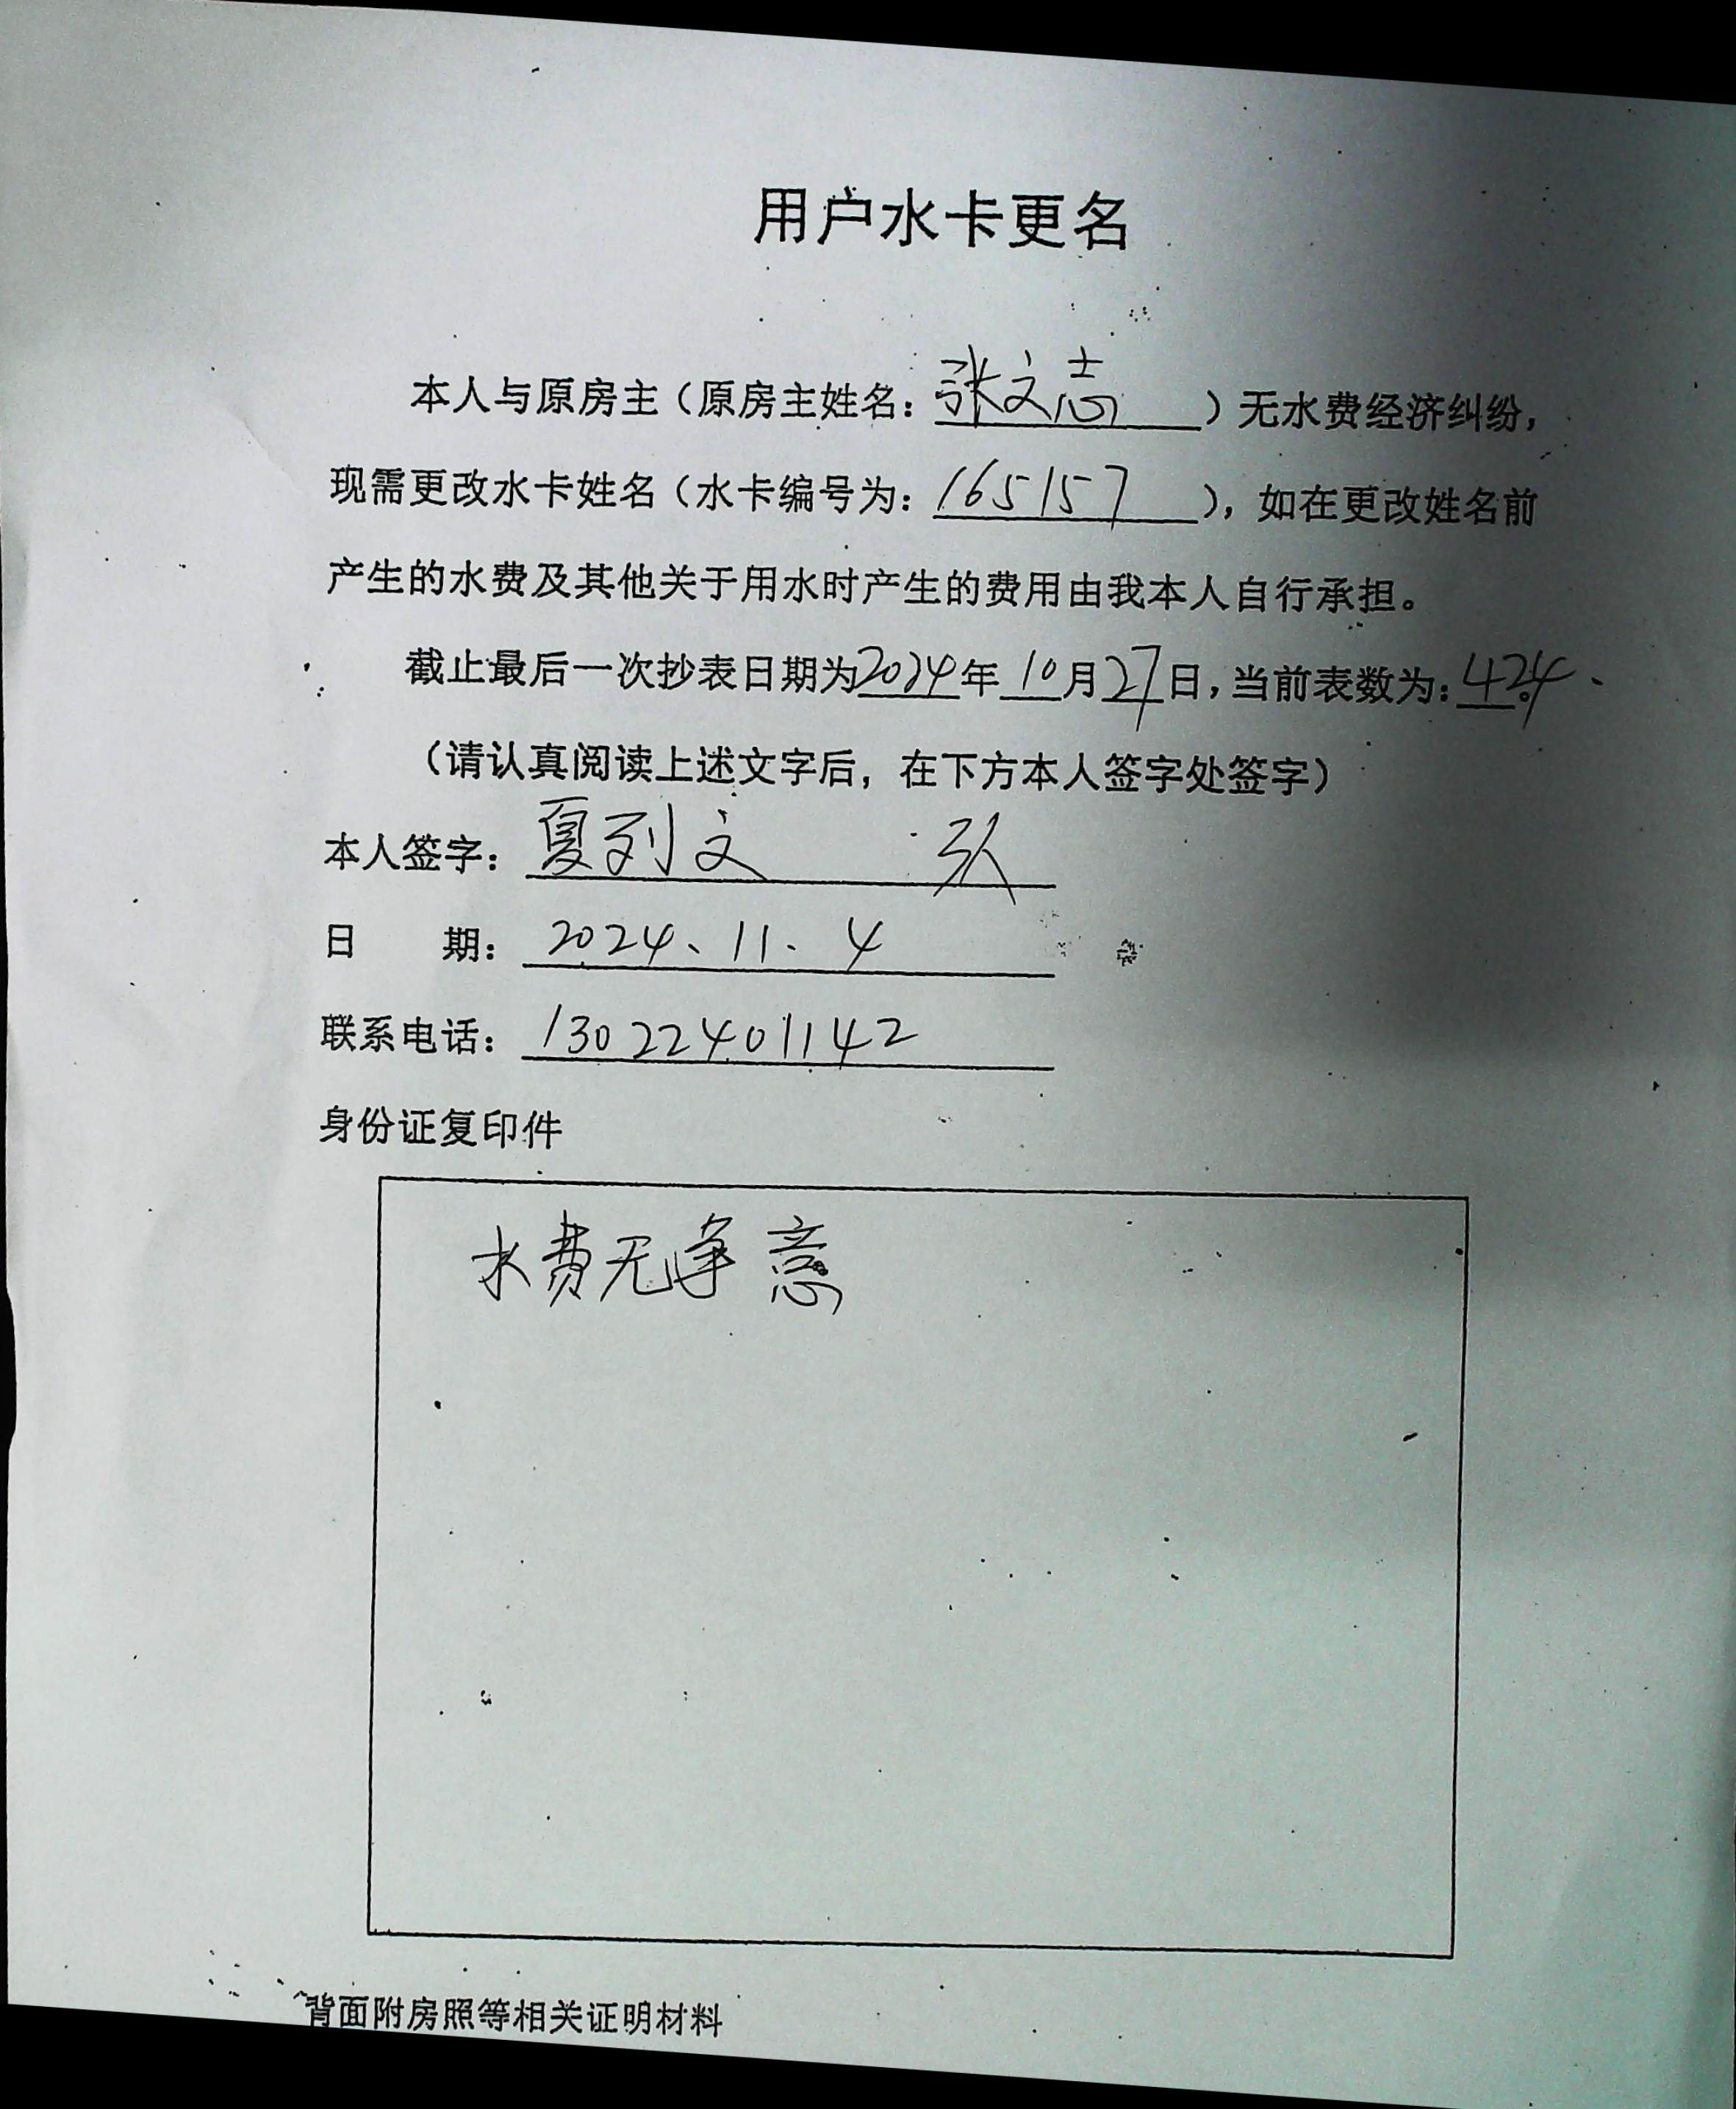 用户水卡更名
本人与原房主（原房主姓名：张文志）无水费经济纠纷，
现需更改水卡姓名（水卡编号为：165157），如在更改姓名前
产生的水费及其他关于用水时产生的费用由我本人自行承担。
截止最后一次抄表日期为2024年10月27日，当前表数为：424。
（请认真阅读上述文字后，在下方本人签字处签字）
本人签字：夏列文
日 期：2024、11、4
联系电话：13022401142
身份证复印件
水费无争意
背面附房照等相关证明材料